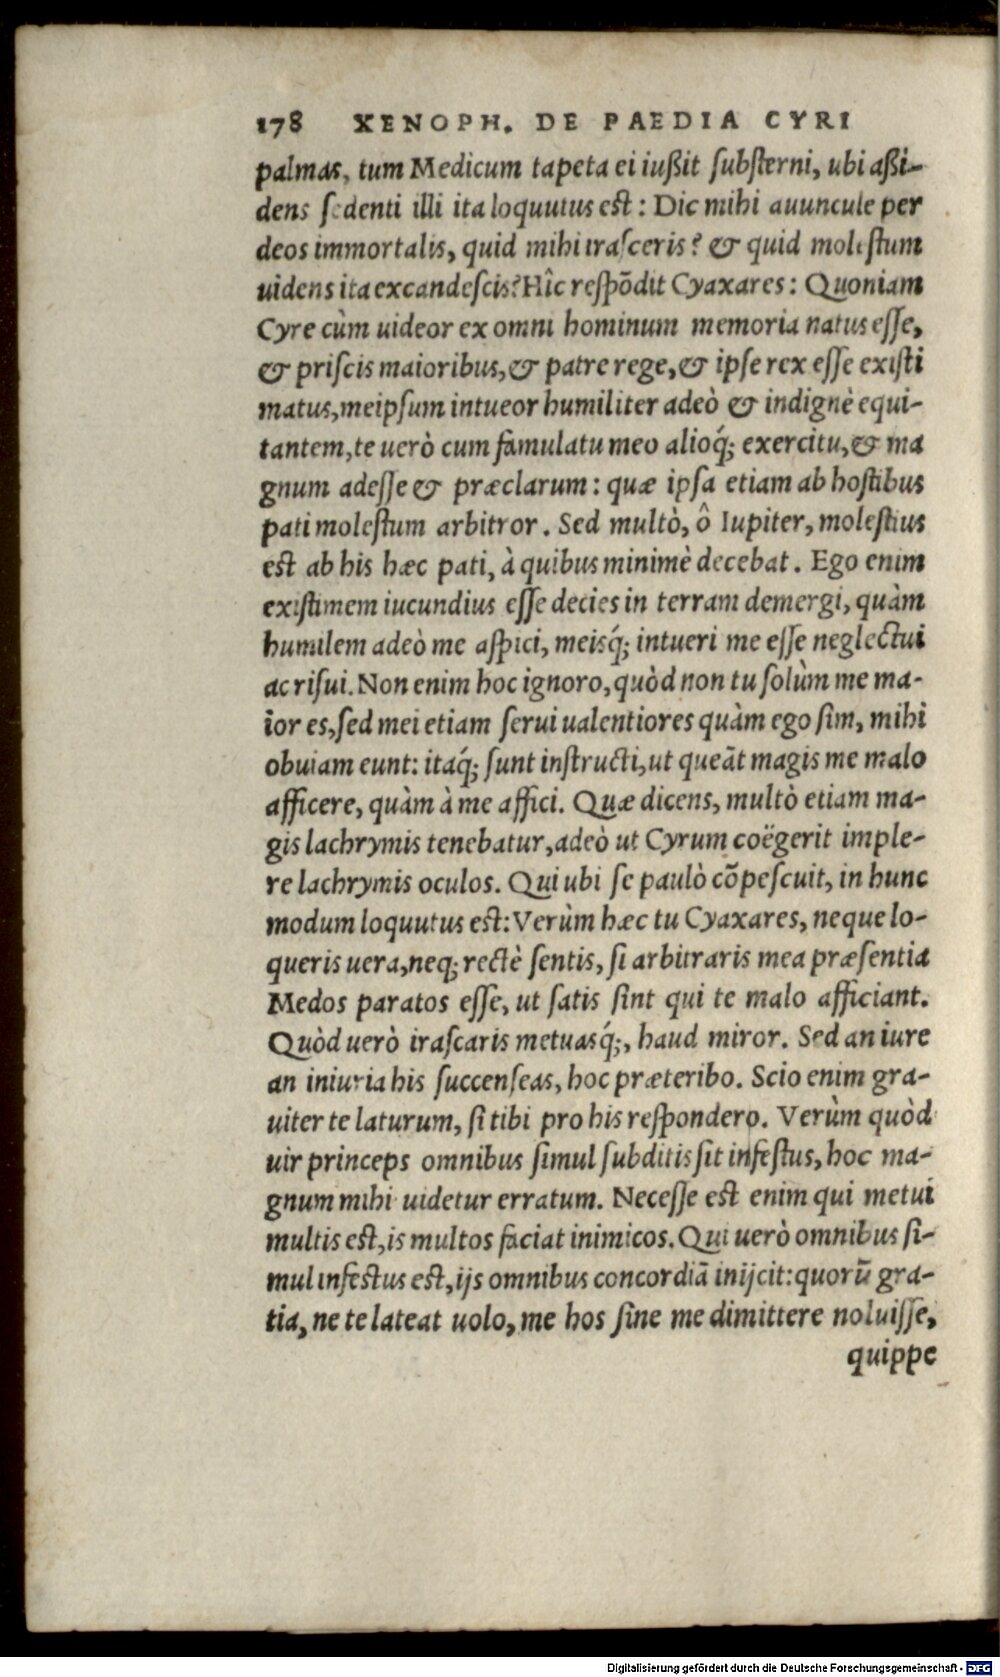 178 XENOPH. DE PAEDIA CYRI
palmas, tum Medicum tapeta ei iußit ſubſterni, ubi aßi-
dens ſedenti illi ita loquutus est: Dic mihi auuncule per
deos immortalis, quid mihi iraſceris? & quid moleſtum
uidens ita excandeſcis? Hîc reſpõdit Cyaxares: Quoniam
Cyre cùm uideor ex omni hominum memoria natus eſſe,
& priſcis maioribus, & patre rege, & ipſe rex eſſe exiſti
matus, meipſum intueor humiliter adeò & indignè equi-
tantem, te uerò cum famulatu meo alioq́; exercitu, & ma
gnum adeſſe & præclarum: quæ ipſa etiam ab hoſtibus
pati moleſtum arbitror. Sed multò, ô Iupiter, moleſtius
est ab his hæc pati, à quibus minimè decebat. Ego enim
exiſtimem iucundius eſſe decies in terram demergi, quàm
humilem adeò me aſpici, meisq́; intueri me eſſe neglectui
ac riſui. Non enim hoc ignoro, quòd non tu ſolùm me ma-
ior es, ſed mei etiam ſerui ualentiores quàm ego ſim, mihi
obuiam eunt: itaq́; ſunt inſtructi, ut queãt magis me malo
afficere, quàm à me affici. Quæ dicens, multò etiam ma-
gis lachrymis tenebatur, adeò ut Cyrum coëgerit imple-
re lachrymis oculos. Qui ubi ſe paulò cõpeſcuit, in hunc
modum loquutus est: Verùm hæc tu Cyaxares, neque lo-
queris uera, neq; rectè ſentis, ſi arbitraris mea præſentia
Medos paratos eſſe, ut ſatis ſint qui te malo afficiant.
Quòd uerò iraſcaris metuasq́;, haud miror. Sed an iure
an iniuria his ſuccenſeas, hoc præteribo. Scio enim gra-
uiter te laturum, ſi tibi pro his reſpondero. Verùm quòd
uir princeps omnibus ſimul ſubditis ſit infeſtus, hoc ma-
gnum mihi uidetur erratum. Neceſſe est enim qui metui
multis est, is multos faciat inimicos. Qui uerò omnibus ſi-
mul infeſtus est, ijs omnibus concordiã inijcit: quorũ gra-
tia, ne te lateat uolo, me hos ſine me dimittere noluiſſe,
quippe
Digitalisierung gefördert durch die Deutsche Forschungsgemeinschaft - DFG